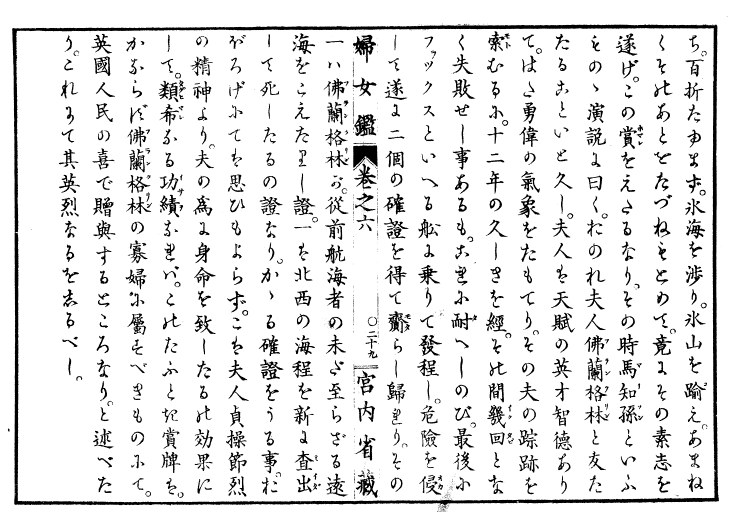 ち。百折たゆまず。氷海を渉り。氷山を踰え。あまね
くそのあとをたづねもとめて。竟にその素志を
遂げ。この賞をえたるなり。その時馬知孫といふ
もの丶演説に曰く。おのれ夫人佛蘭格林と友た
たることいと久し。夫人は天賦の英才智德あり
て。はた勇偉の氣象をたもてり。その夫の踪跡を
索むるに。十二年の久しきを經。その間幾回とな
く失敗せし事あるも。これに耐へしのび。最後に
フォックスといへる舩に乗りて發程し。危險を侵
して遂に二個の確證を得て齎らし歸れり。その
婦女鑑 卷之六 〇二十九 宮内省藏
一ハ佛蘭格林が。從前航海者の未だ至らざる遠
海をこえたりし證。一は北西の海程を新に査出
して死したるの證なり。かゝる確證をうる事。お
ぼろげにても思ひもよらず。こは夫人貞操節烈
の精神より。夫の爲に身命を致したるの効果に
して。類希なる功績なれバ。このたふとき賞牌は。
かならず佛蘭格林の寡婦に屬すべきものにて。
英國人民の喜で贈與するところなり。と述べた
り。これにて其英烈なるを志るべし。